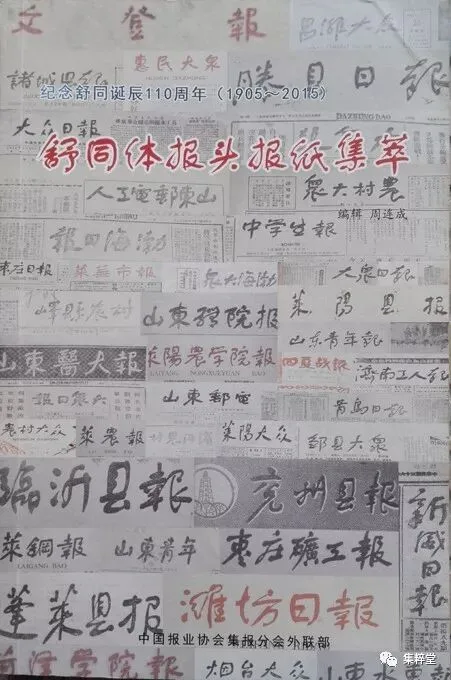 文登報
昌濰大众
惠民大众
HUIMIN DAZHONG
勝利日報
纪念舒同诞辰110周年（1905～2015）
大众日報
DAZHONG BAO
舒同体报头报纸集萃
山東郵電工人
農村大衆
编辑 周连成
渤海日報
中学生報
枣庄日报
莱蕪市報
渤海大衆
大衆日報
山東醫院報
莱陽县報
山东青年報
山東醫大報
萊陽農学院報
LAIYANG NONGXUEYUAN BAO
四夏战报
濟南工人報
大衆日報
山東郵電
青島日報
農村大众
萊農報
萊陽大众
邹县大衆
臨沂县報
兖州县報
新威日報
萊鋼報
LAIGANG BAO
山東青年
枣庄礦工報
蓬萊县报
濰坊日報
中国报业协会集报分会外联部
菏澤学院報
烟台大众
山東水電報
集粹堂